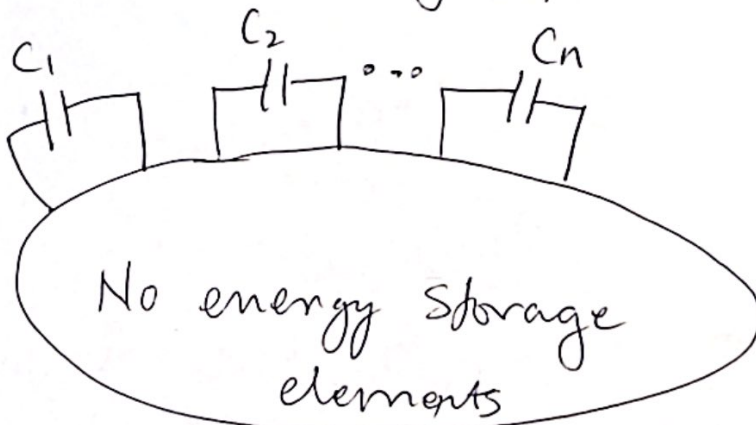 C1
C2
...
Cn
No energy storage
elements